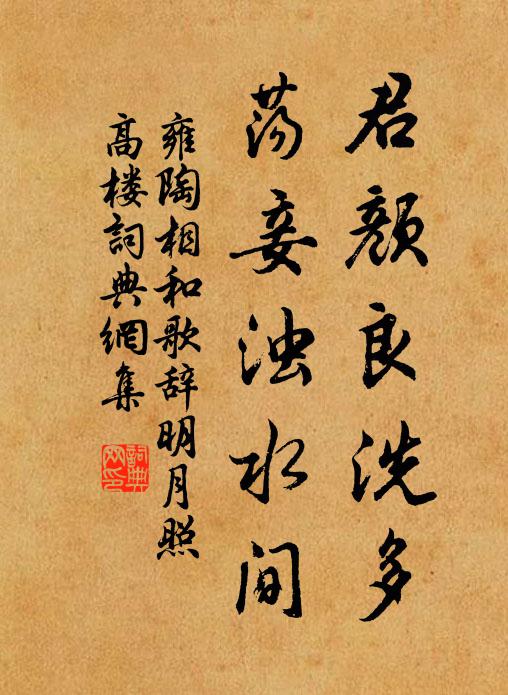 君颜良洗多
荡妾浊水间
雍陶相和歌辞明月照
高楼詞典網集
詞典
网印